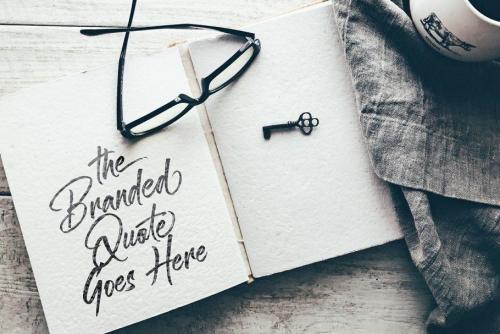 the
Branded
Quote
Goes Here